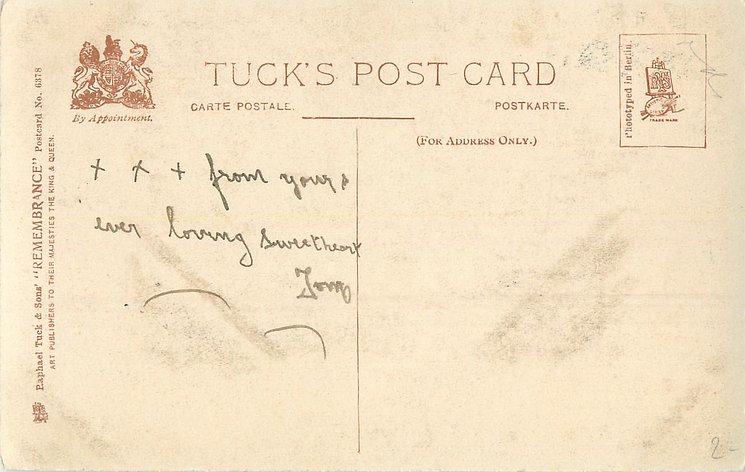 TUCK'S POST CARD
CARTE POSTALE.
POSTKARTE.
By Appointment.
(FOR ADDRESS ONLY.)
Phototyped in Berlin.
TRADE MARK
Raphael Tuck & Sons' "REMEMBRANCE" Postcard No. 6378
ART PUBLISHERS TO THEIR MAJESTIES THE KING & QUEEN.
+ + + from yours
ever loving sweetheart
Tom
2-